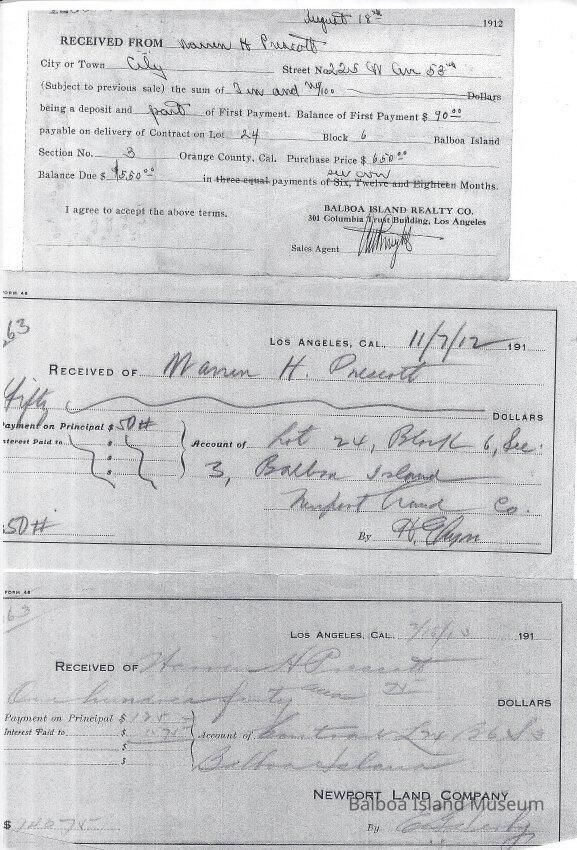 August 18th 1912
RECEIVED FROM Warren H Prescott
City or Town City Street No. 225 W Ave 53rd
(Subject to previous sale) the sum of Ten and no/100 Dollars
being a deposit and part of First Payment. Balance of First Payment $ 90.00
payable on delivery of Contract on Lot 24 Block 6 Balboa Island
Section No. 3 Orange County, Cal. Purchase Price $ 650.00
Balance Due $ $550.00 in three equal payments of Six, Twelve and Eighteen Months.
I agree to accept the above terms.
BALBOA ISLAND REALTY CO.
301 Columbia Trust Building, Los Angeles
Sales Agent
FORM 48
63
LOS ANGELES, CAL., 11/7/12 191
RECEIVED OF Warren H. Prescott
Fifty DOLLARS
Payment on Principal $ 50#
Interest Paid to $
$
$
Account of Lot 24, Block 6, Sec.
3, Balboa Island
Newport Land Co.
50#
By
FORM 48
63
LOS ANGELES, CAL. 191
RECEIVED OF Warren H Prescott
One hundred forty DOLLARS
Payment on Principal $ 125
Interest Paid to $ 15.75
$
$
Account of Contract L 24 B 6 S 3
Balboa Island
NEWPORT LAND COMPANY
Balboa Island Museum
$ 140 75
By